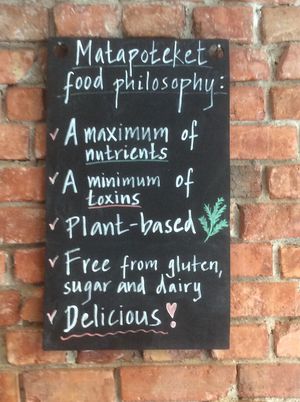 Matapoteket
food philosophy:
A maximum of
nutrients
A minimum of
toxins
Plant-based
Free from gluten,
sugar and dairy
Delicious!